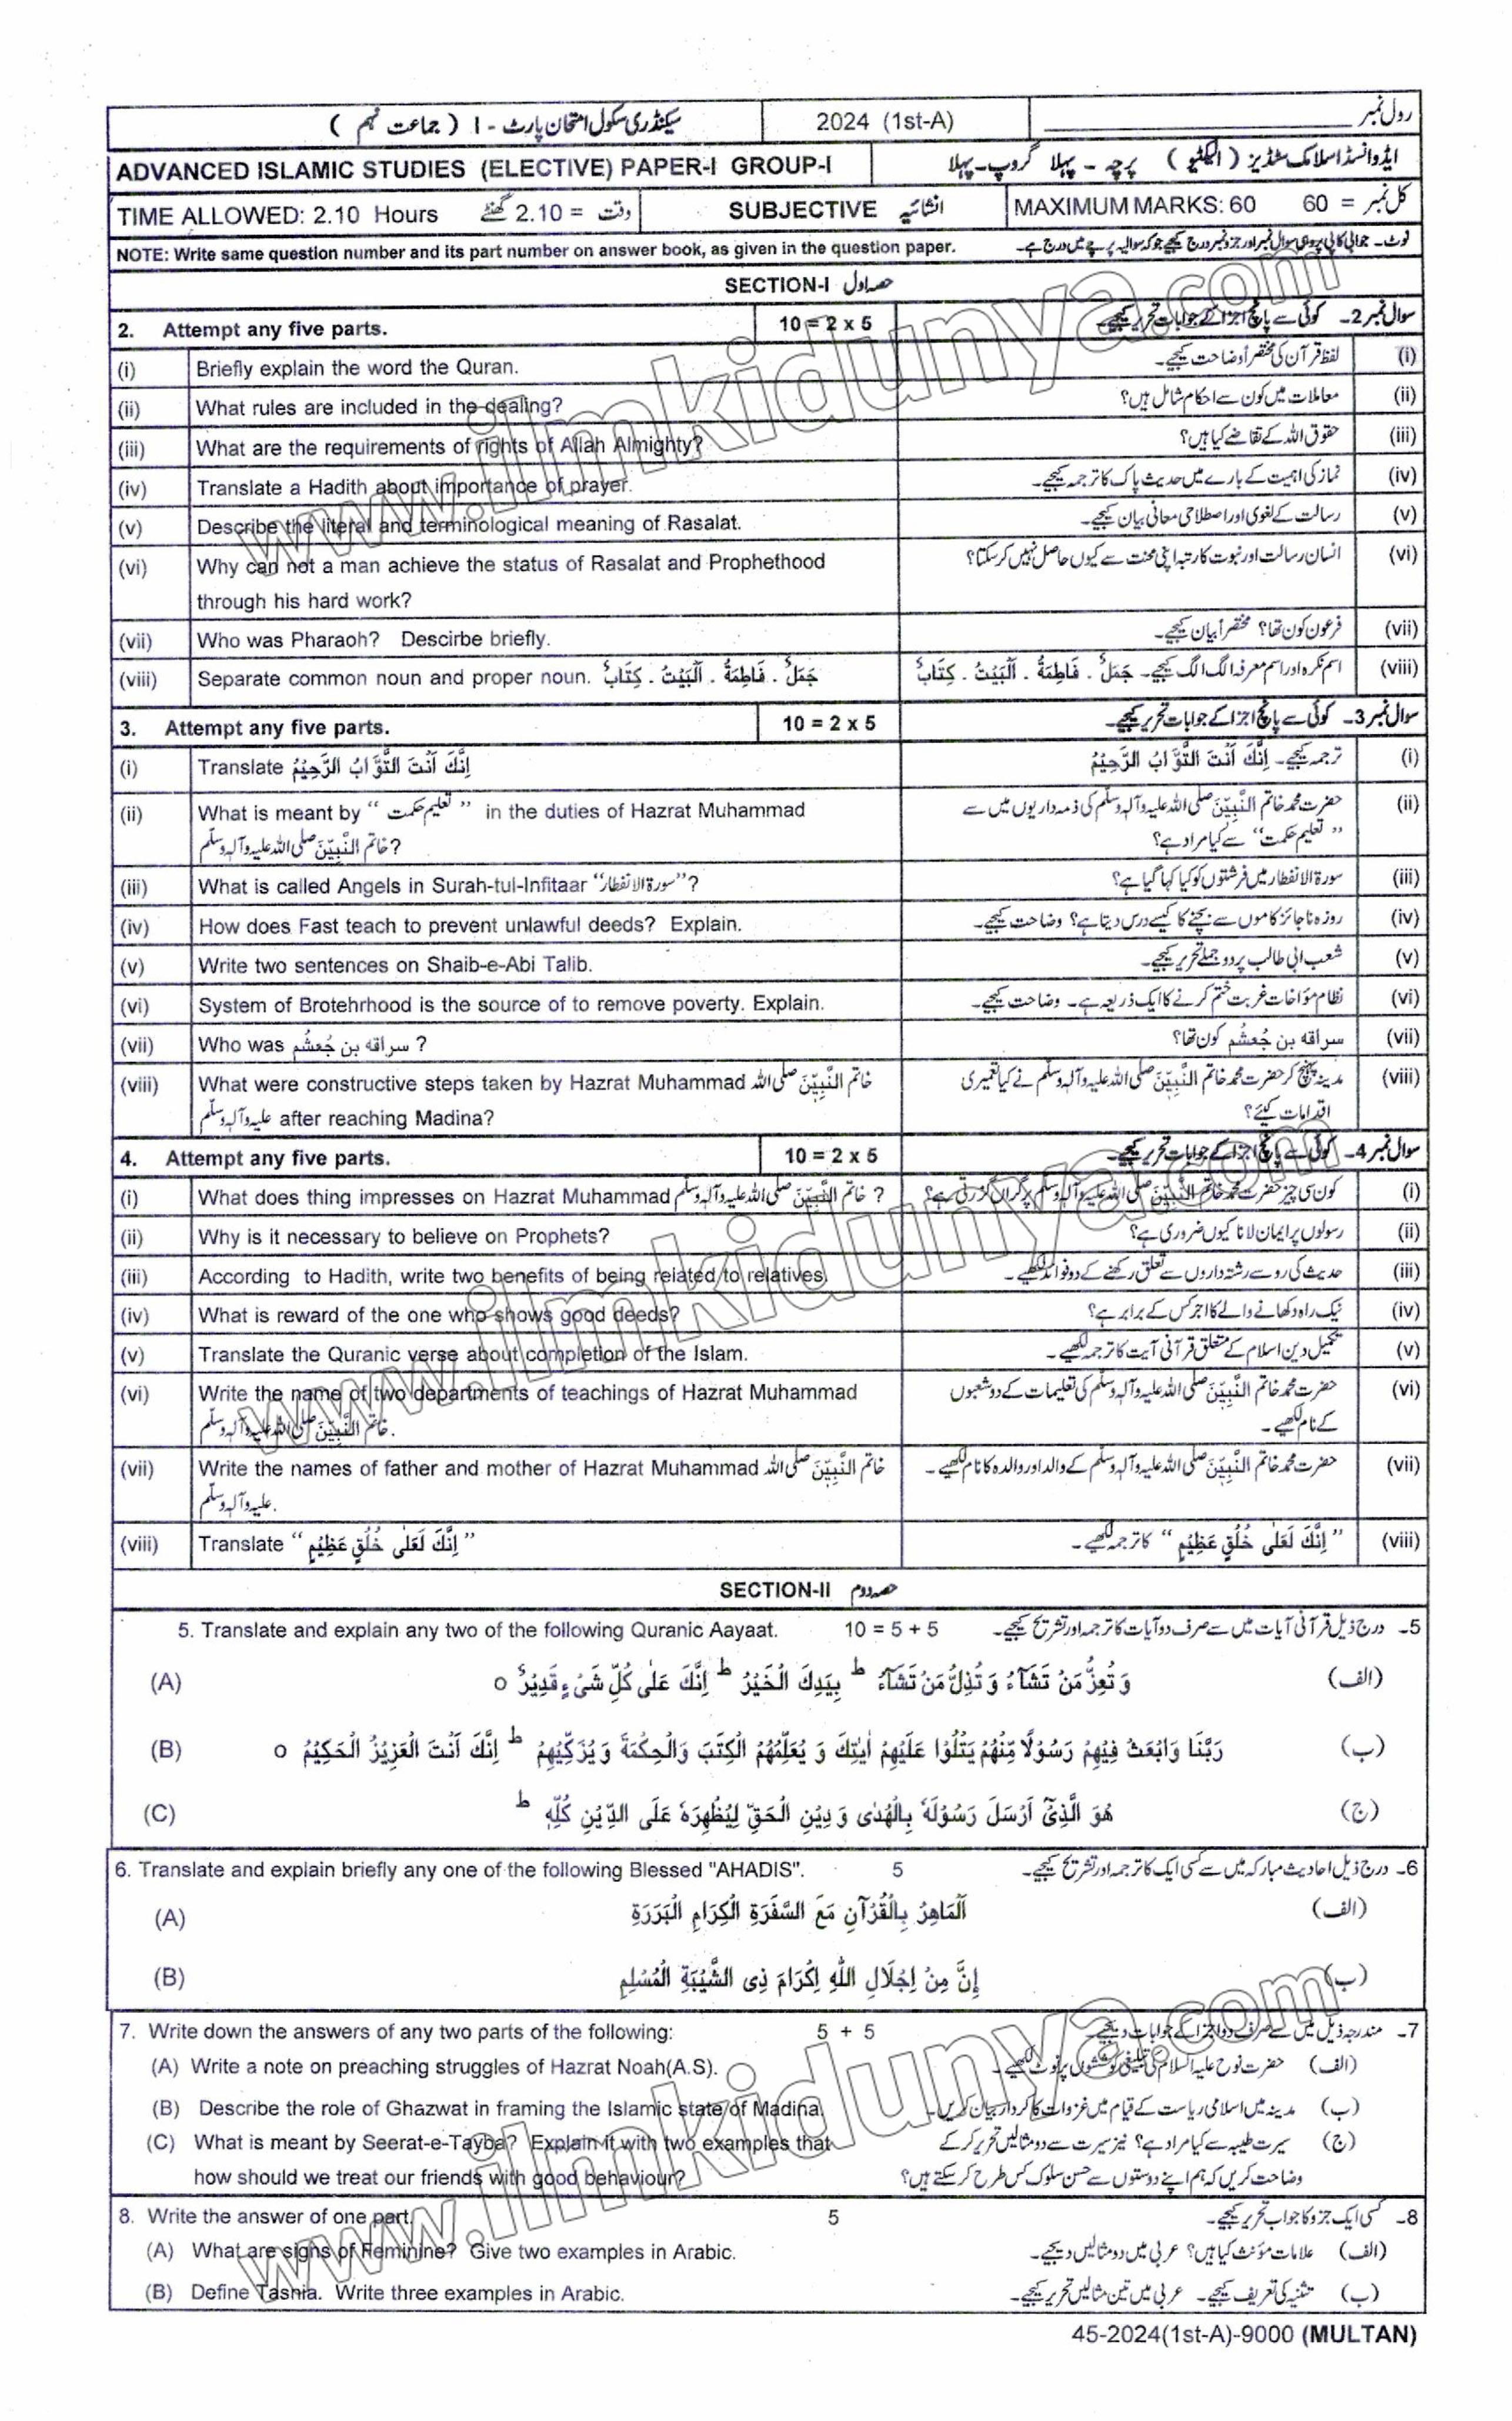 سیکنڈری سکول امتحان پارٹ - I ( جماعت نہم ) 2024 (1st-A) رول نمبر
ADVANCED ISLAMIC STUDIES (ELECTIVE) PAPER-I GROUP-I ایڈوانسڈ اسلامک سٹڈیز ( الیکٹیو ) پرچہ - پہلا گروپ - پہلا
TIME ALLOWED: 2.10 Hours وقت = 2.10 گھنٹے SUBJECTIVE انشائیہ MAXIMUM MARKS: 60 کل نمبر = 60
NOTE: Write same question number and its part number on answer book, as given in the question paper. نوٹ۔ جوابی کاپی پر وہی سوال نمبر اور جز نمبر درج کیجیے جو کہ سوالیہ پرچے میں درج ہے۔
SECTION-I حصہ اول
2. Attempt any five parts. 10 = 2 x 5 سوال نمبر 2۔ کوئی سے پانچ اجزا کے جوابات تحریر کیجیے۔
(i) Briefly explain the word the Quran. لفظ قرآن کی مختصراً وضاحت کیجیے۔ (i)
(ii) What rules are included in the dealing? معاملات میں کون سے احکام شامل ہیں؟ (ii)
(iii) What are the requirements of rights of Allah Almighty? حقوق اللہ کے تقاضے کیا ہیں؟ (iii)
(iv) Translate a Hadith about importance of prayer. نماز کی اہمیت کے بارے میں حدیث پاک کا ترجمہ کیجیے۔ (iv)
(v) Describe the literal and terminological meaning of Rasalat. رسالت کے لغوی اور اصطلاحی معانی بیان کیجیے۔ (v)
(vi) Why can not a man achieve the status of Rasalat and Prophethood انسان رسالت اور نبوت کا رتبہ اپنی محنت سے کیوں حاصل نہیں کر سکتا؟ (vi)
through his hard work?
(vii) Who was Pharaoh? Descirbe briefly. فرعون کون تھا؟ مختصراً بیان کیجیے۔ (vii)
(viii) Separate common noun and proper noun. جَمَلٌ . فَاطِمَةُ . اَلْبَيْتُ . كِتَابٌ اسم نکرہ اور اسم معرفہ الگ الگ کیجیے۔ جَمَلٌ . فَاطِمَةُ . اَلْبَيْتُ . كِتَابٌ (viii)
3. Attempt any five parts. 10 = 2 x 5 سوال نمبر 3۔ کوئی سے پانچ اجزا کے جوابات تحریر کیجیے۔
(i) Translate اِنَّكَ اَنْتَ التَّوَّابُ الرَّحِيْمُ ترجمہ کیجیے۔ اِنَّكَ اَنْتَ التَّوَّابُ الرَّحِيْمُ (i)
(ii) What is meant by “تعلیم حکمت” in the duties of Hazrat Muhammad حضرت محمد خاتم النَّبِيّٖنَ صلی اللہ علیہ وآلہ وسلم کی ذمہ داریوں میں سے (ii)
خاتم النَّبِيّٖنَ صلی اللہ علیہ وآلہ وسلم? “تعلیم حکمت” سے کیا مراد ہے؟
(iii) What is called Angels in Surah-tul-Infitaar “سورۃ الانفطار”? سورۃ الانفطار میں فرشتوں کو کیا کہا گیا ہے؟ (iii)
(iv) How does Fast teach to prevent unlawful deeds? Explain. روزہ ناجائز کاموں سے بچنے کا کیسے درس دیتا ہے؟ وضاحت کیجیے۔ (iv)
(v) Write two sentences on Shaib-e-Abi Talib. شعب ابی طالب پر دو جملے تحریر کیجیے۔ (v)
(vi) System of Brotehrhood is the source of to remove poverty. Explain. نظام مؤاخات غربت ختم کرنے کا ایک ذریعہ ہے۔ وضاحت کیجیے۔ (vi)
(vii) Who was سراقہ بن جُعشُم ? سراقہ بن جُعشُم کون تھا؟ (vii)
(viii) What were constructive steps taken by Hazrat Muhammad خاتم النَّبِيّٖنَ صلی اللہ مدینہ پہنچ کر حضرت محمد خاتم النَّبِيّٖنَ صلی اللہ علیہ وآلہ وسلم نے کیا تعمیری (viii)
علیہ وآلہ وسلم after reaching Madina? اقدامات کیئے؟
4. Attempt any five parts. 10 = 2 x 5 سوال نمبر 4۔ کوئی سے پانچ اجزا کے جوابات تحریر کیجیے۔
(i) What does thing impresses on Hazrat Muhammad خاتم النَّبِيّٖنَ صلی اللہ علیہ وآلہ وسلم ? کون سی چیز حضرت محمد خاتم النَّبِيّٖنَ صلی اللہ علیہ وآلہ وسلم پر گراں گزرتی ہے؟ (i)
(ii) Why is it necessary to believe on Prophets? رسولوں پر ایمان لانا کیوں ضروری ہے؟ (ii)
(iii) According to Hadith, write two benefits of being related to relatives. حدیث کی رو سے رشتہ داروں سے تعلق رکھنے کے دو فوائد لکھیے۔ (iii)
(iv) What is reward of the one who shows good deeds? نیک راہ دکھانے والے کا اجر کس کے برابر ہے؟ (iv)
(v) Translate the Quranic verse about completion of the Islam. تکمیل دین اسلام کے متعلق قرآنی آیت کا ترجمہ لکھیے۔ (v)
(vi) Write the name of two departments of teachings of Hazrat Muhammad حضرت محمد خاتم النَّبِيّٖنَ صلی اللہ علیہ وآلہ وسلم کی تعلیمات کے دو شعبوں (vi)
خاتم النَّبِيّٖنَ صلی اللہ علیہ وآلہ وسلم. کے نام لکھیے۔
(vii) Write the names of father and mother of Hazrat Muhammad خاتم النَّبِيّٖنَ صلی اللہ حضرت محمد خاتم النَّبِيّٖنَ صلی اللہ علیہ وآلہ وسلم کے والد اور والدہ کا نام لکھیے۔ (vii)
علیہ وآلہ وسلم.
(viii) Translate “اِنَّكَ لَعَلٰى خُلُقٍ عَظِيْمٍ” “اِنَّكَ لَعَلٰى خُلُقٍ عَظِيْمٍ” کا ترجمہ لکھیے۔ (viii)
SECTION-II حصہ دوم
5. Translate and explain any two of the following Quranic Aayaat. 10 = 5 + 5 5۔ درج ذیل قرآنی آیات میں سے صرف دو آیات کا ترجمہ اور تشریح کیجیے۔
(A) وَ تُعِزُّ مَنْ تَشَآءُ وَ تُذِلُّ مَنْ تَشَآءُ ط بِيَدِكَ الْخَيْرُ ط اِنَّكَ عَلٰى كُلِّ شَىْءٍ قَدِيْرٌ o (الف)
(B) رَبَّنَا وَابْعَثْ فِيْهِمْ رَسُوْلًا مِّنْهُمْ يَتْلُوْا عَلَيْهِمْ اٰيٰتِكَ وَ يُعَلِّمُهُمُ الْكِتٰبَ وَالْحِكْمَةَ وَ يُزَكِّيْهِمْ ط اِنَّكَ اَنْتَ الْعَزِيْزُ الْحَكِيْمُ o (ب)
(C) هُوَ الَّذِىْٓ اَرْسَلَ رَسُوْلَهٗ بِالْهُدٰى وَ دِيْنِ الْحَقِّ لِيُظْهِرَهٗ عَلَى الدِّيْنِ كُلِّهٖ ط (ج)
6. Translate and explain briefly any one of the following Blessed "AHADIS". 5 6۔ درج ذیل احادیث مبارکہ میں سے کسی ایک کا ترجمہ اور تشریح کیجیے۔
(A) اَلْمَاهِرُ بِالْقُرْآنِ مَعَ السَّفَرَةِ الْكِرَامِ الْبَرَرَةِ (الف)
(B) اِنَّ مِنْ اِجْلَالِ اللّٰهِ اِكْرَامَ ذِى الشَّيْبَةِ الْمُسْلِمِ (ب)
7. Write down the answers of any two parts of the following: 5 + 5 7۔ مندرجہ ذیل میں سے صرف دو اجزا کے جوابات دیجیے۔
(A) Write a note on preaching struggles of Hazrat Noah(A.S). (الف) حضرت نوح علیہ السلام کی تبلیغی کوششوں پر نوٹ لکھیے۔
(B) Describe the role of Ghazwat in framing the Islamic state of Madina. (ب) مدینہ میں اسلامی ریاست کے قیام میں غزوات کا کردار بیان کریں۔
(C) What is meant by Seerat-e-Tayba? Explain it with two examples that (ج) سیرت طیبہ سے کیا مراد ہے؟ نیز سیرت سے دو مثالیں تحریر کر کے
how should we treat our friends with good behaviour? وضاحت کریں کہ ہم اپنے دوستوں سے حسن سلوک کس طرح کر سکتے ہیں؟
8. Write the answer of one part. 5 8۔ کسی ایک جزو کا جواب تحریر کیجیے۔
(A) What are signs of Feminine? Give two examples in Arabic. (الف) علامات مؤنث کیا ہیں؟ عربی میں دو مثالیں دیجیے۔
(B) Define Tashia. Write three examples in Arabic. (ب) تثنیہ کی تعریف کیجیے۔ عربی میں تین مثالیں تحریر کیجیے۔
45-2024(1st-A)-9000 (MULTAN)
www.ilmkidunya.com
www.ilmkidunya.com
www.ilmkidunya.com